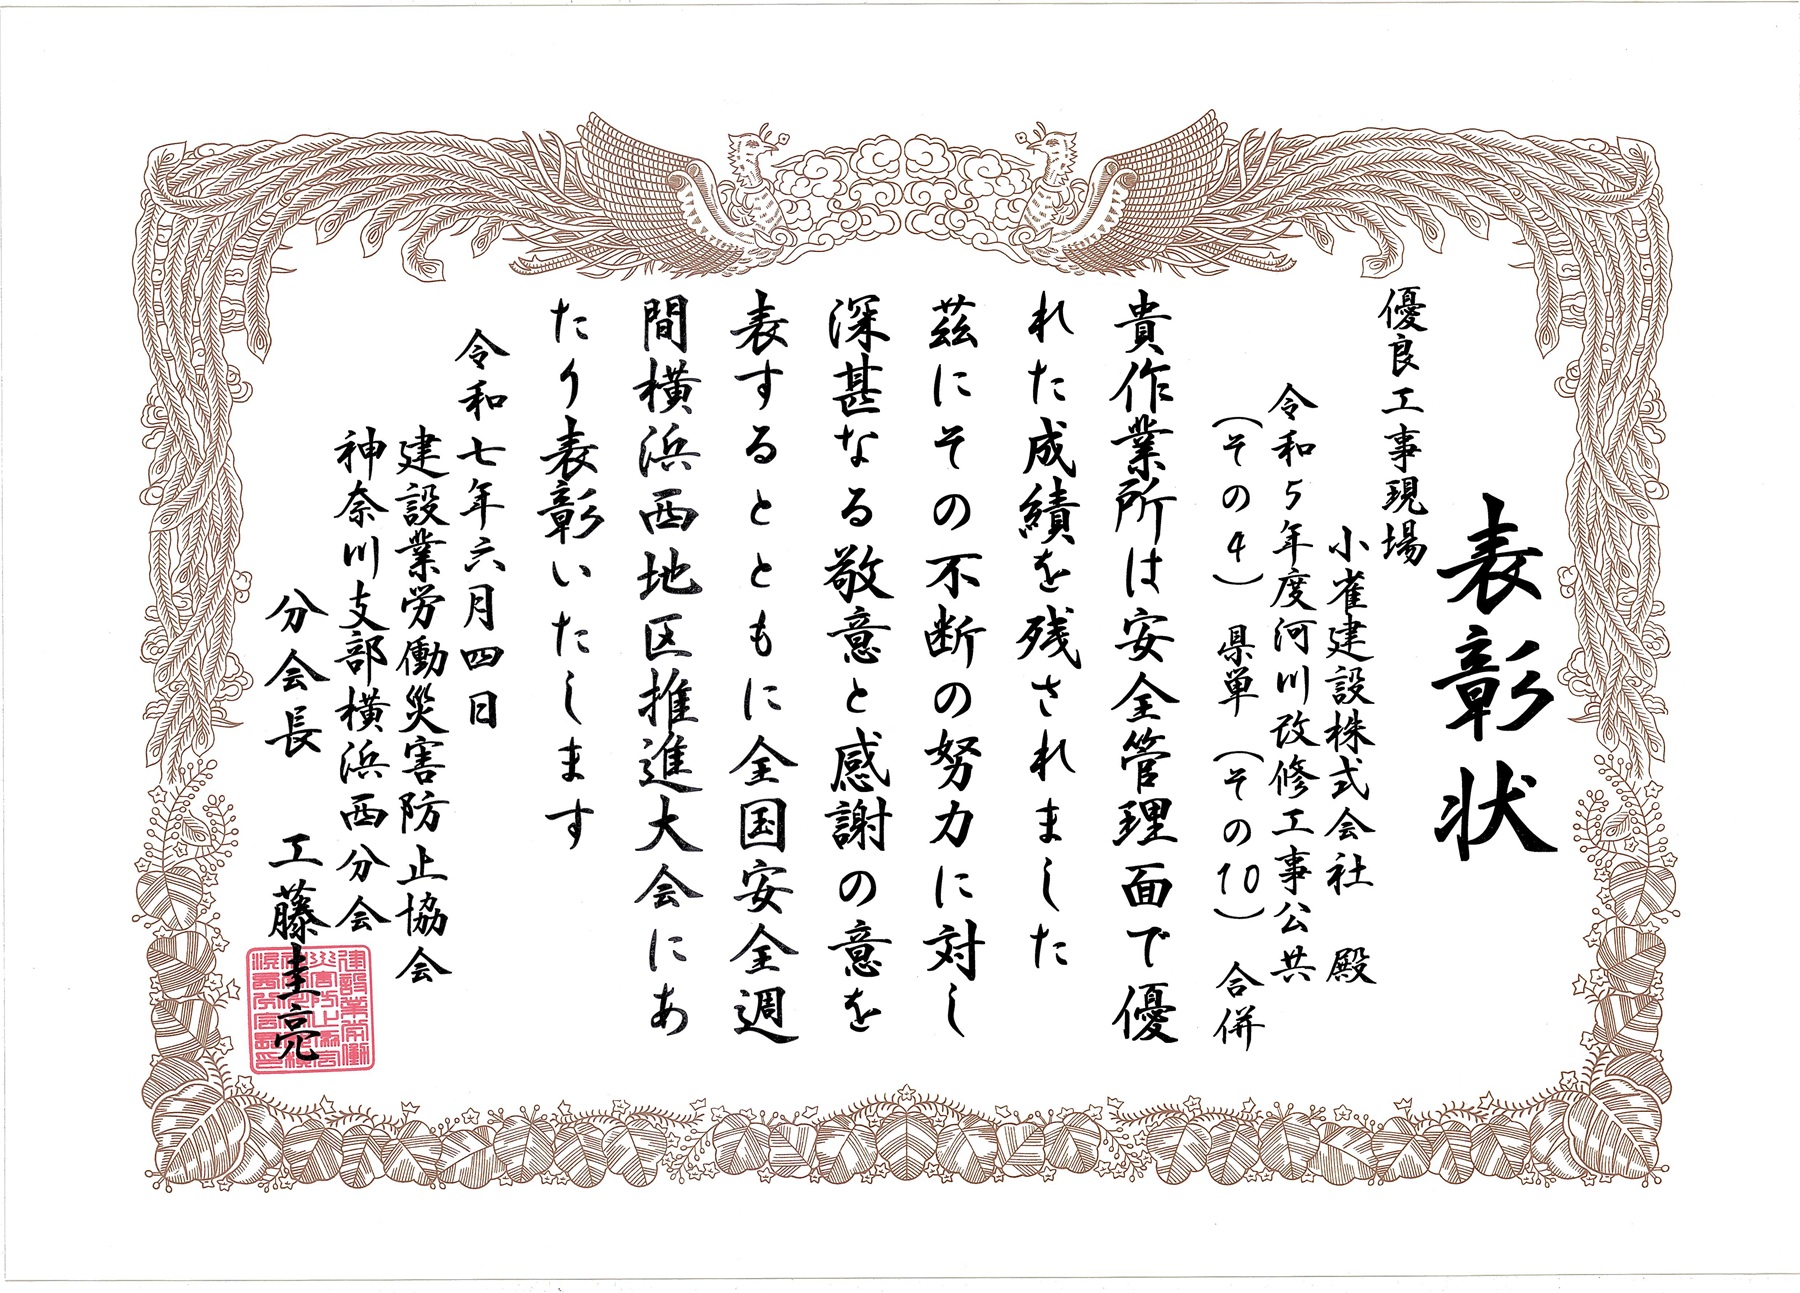 表彰状
優良工事現場
小雀建設株式会社 殿
令和5年度河川改修工事公共
(その4) 県単 (その10) 合併
貴作業所は安全管理面で優
れた成績を残されました
茲にその不断の努力に対し
深甚なる敬意と感謝の意を
表するとともに全国安全週
間横浜西地区推進大会にあ
たり表彰いたします
令和七年六月四日
建設業労働災害防止協会
神奈川支部横浜西分会
分会長 工藤圭亮